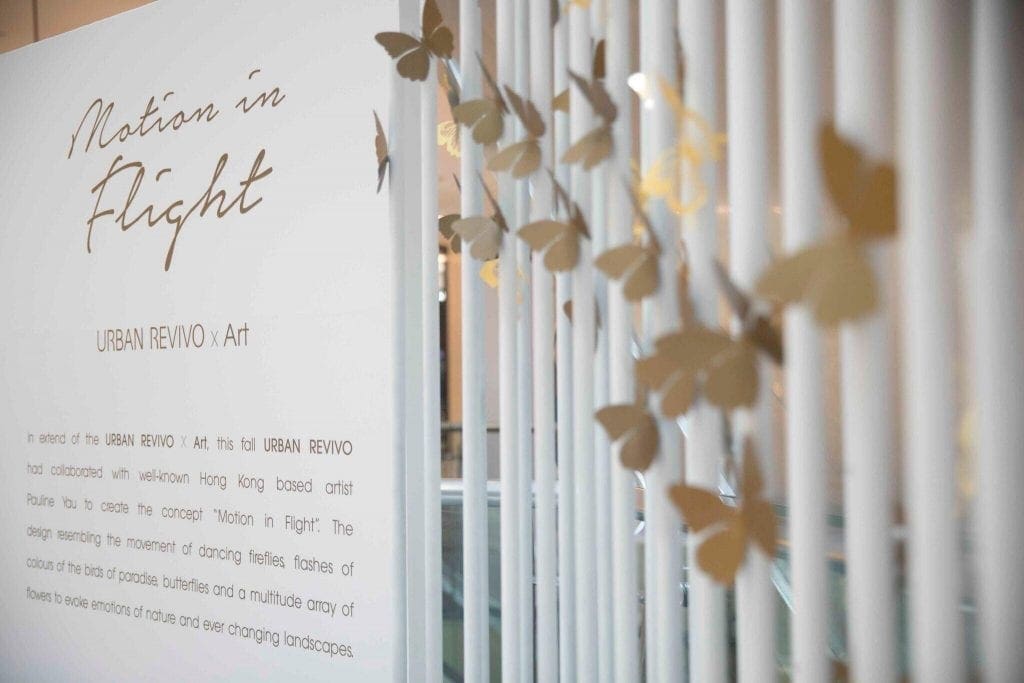 Motion in
Flight
URBAN REVIVO x Art
In extend of the URBAN REVIVO X Art, this fall URBAN REVIVO
had collaborated with well-known Hong Kong based artist
Pauline Yau to create the concept "Motion in Flight". The
design resembling the movement of dancing fireflies, flashes of
colours of the birds of paradise, butterflies and a multitude array of
flowers to evoke emotions of nature and ever changing landscapes.